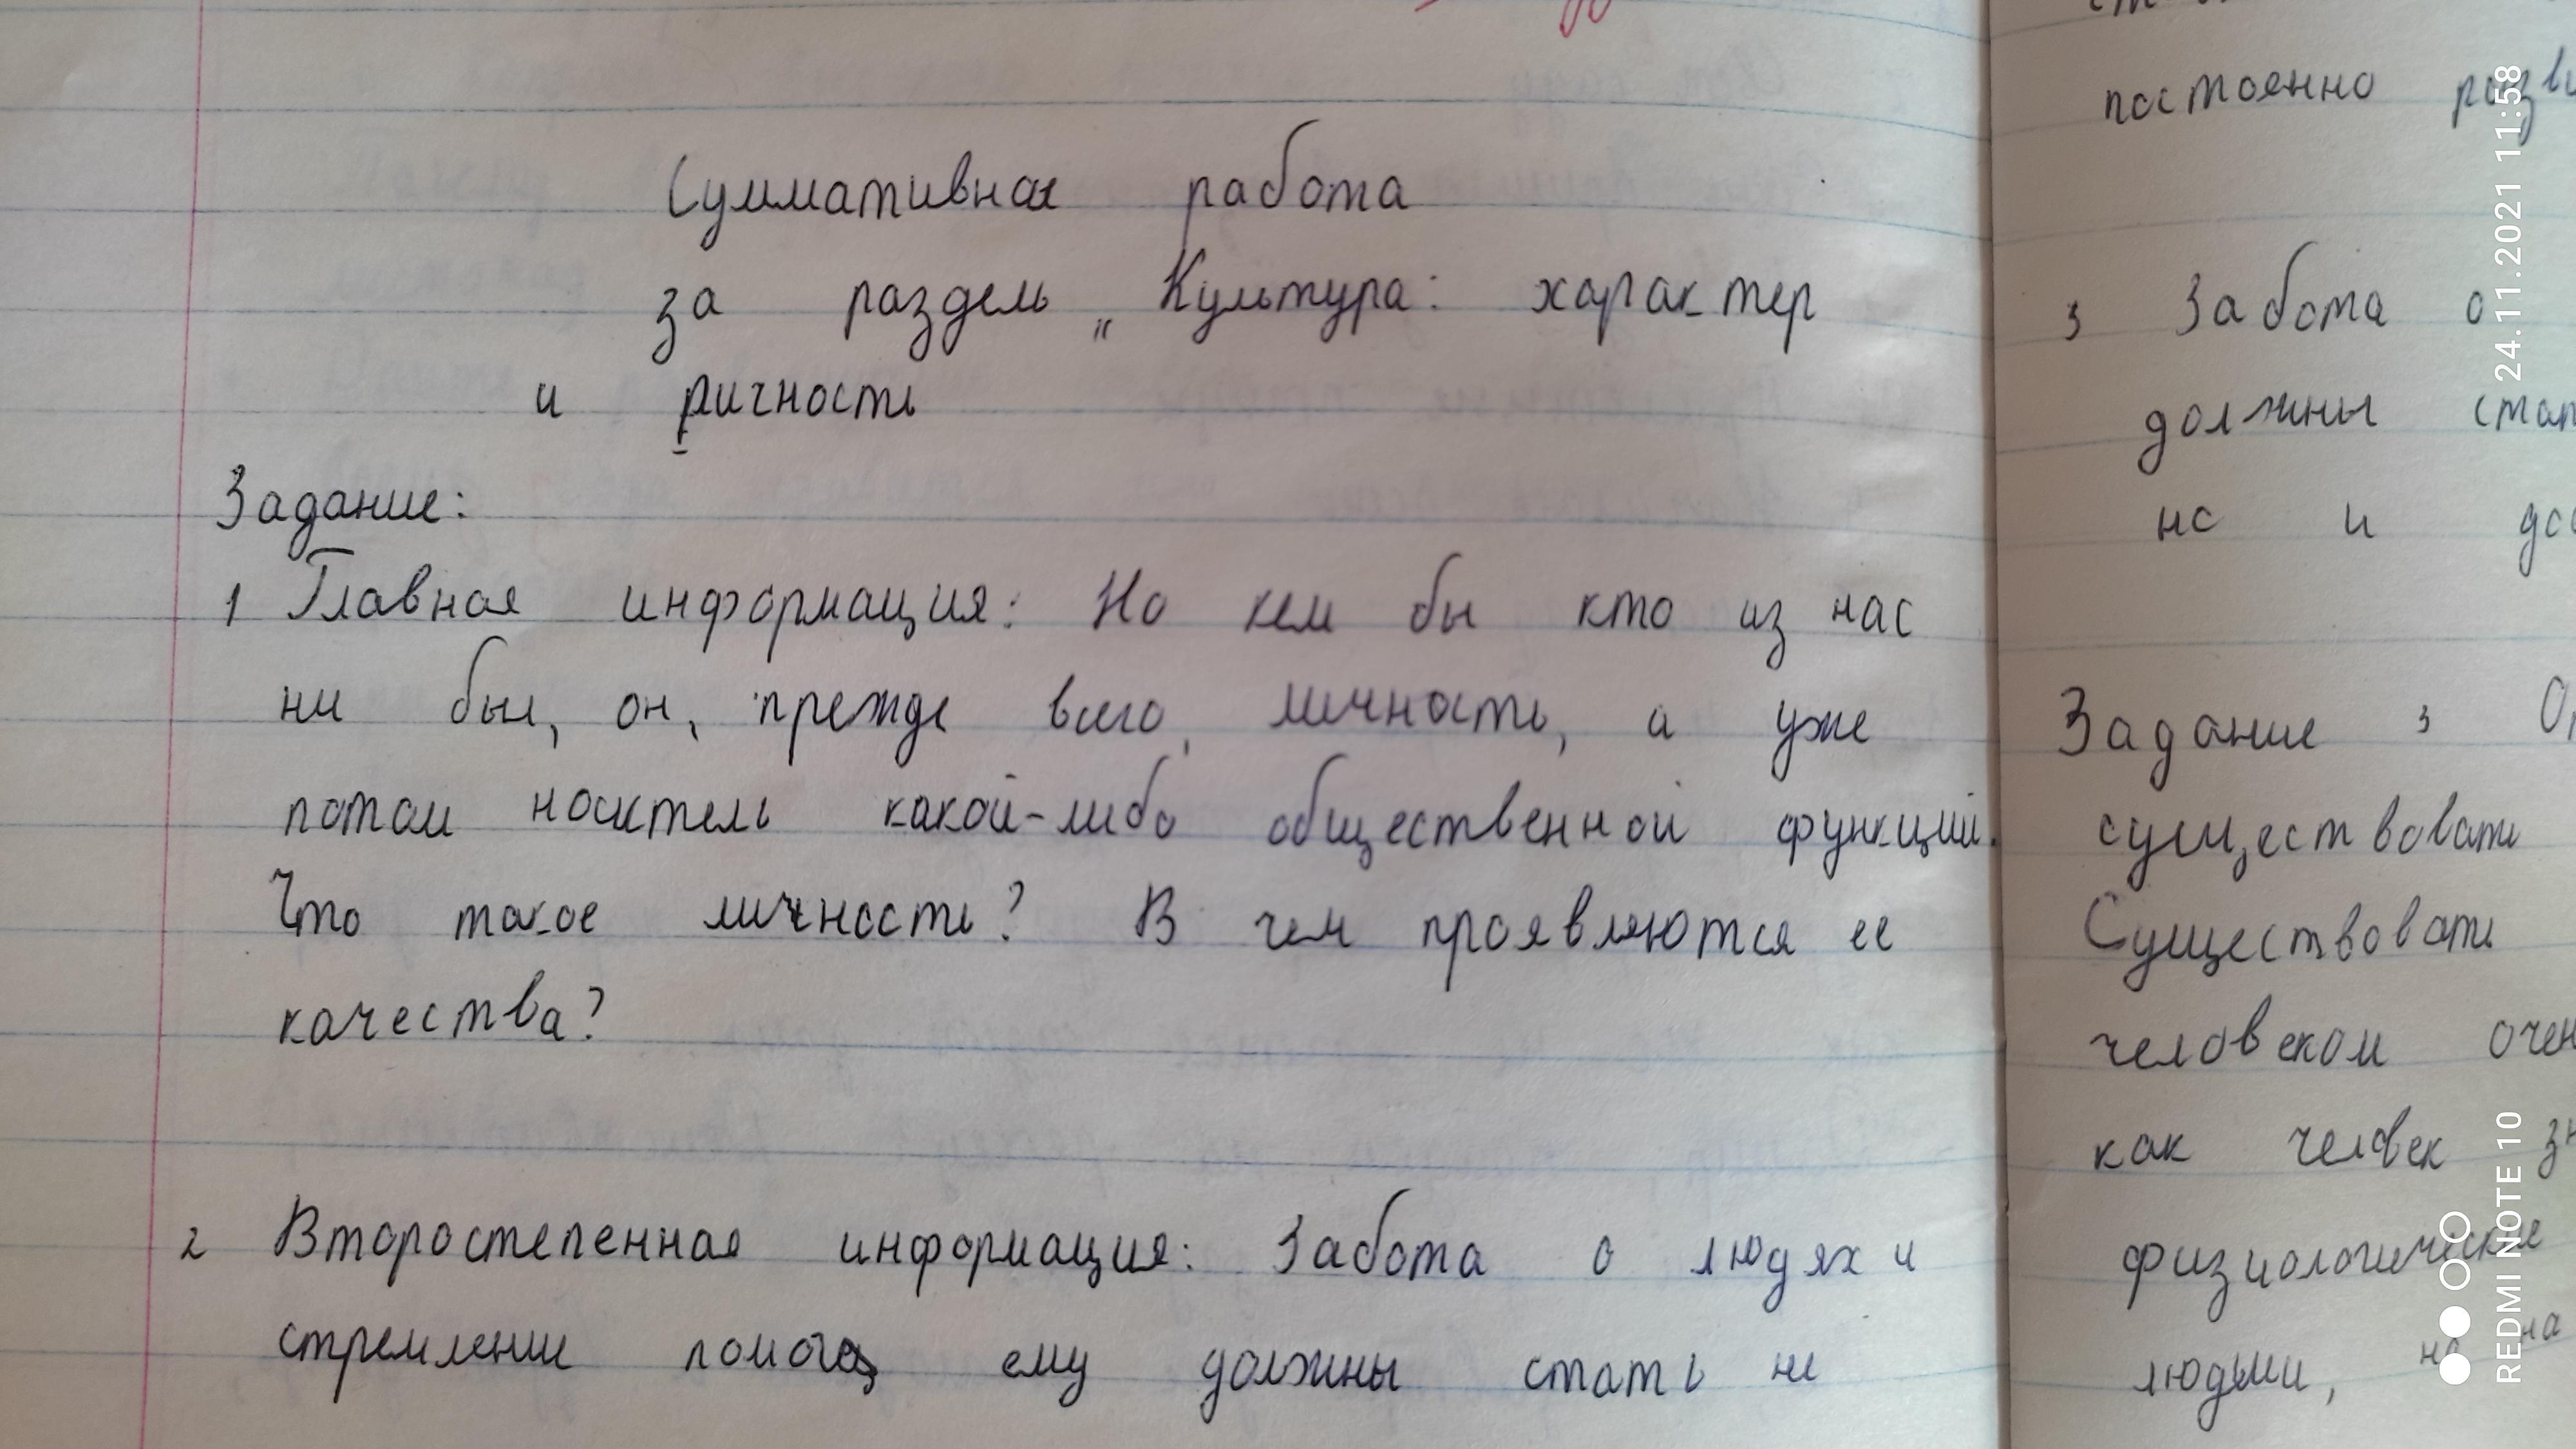 Суммативная работа
за раздель „Культура: характер
и ричность
Задание:
1 Главная информация: Но кем бы кто из нас
ни был, он, прежде всего, личность, а уже
потом носитель какой-либо общественной функций.
Что такое личность? В чем проявляются ее
качества?
2 Второстепенная информация: Забота о людях и
стремление ему должны стать не
постоенно
3 Забота о
должны
нс и
Задание 3
существовать
Существовать
человеком
как человек
физиологическое
людьми, но на
24.11.2021 11:58
REDMI NOTE 10